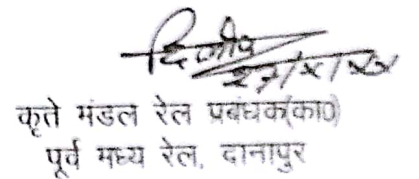 दिलीप
कृते मंडल रेल प्रबंधक(का०)
पूर्व मध्य रेल, दानापुर